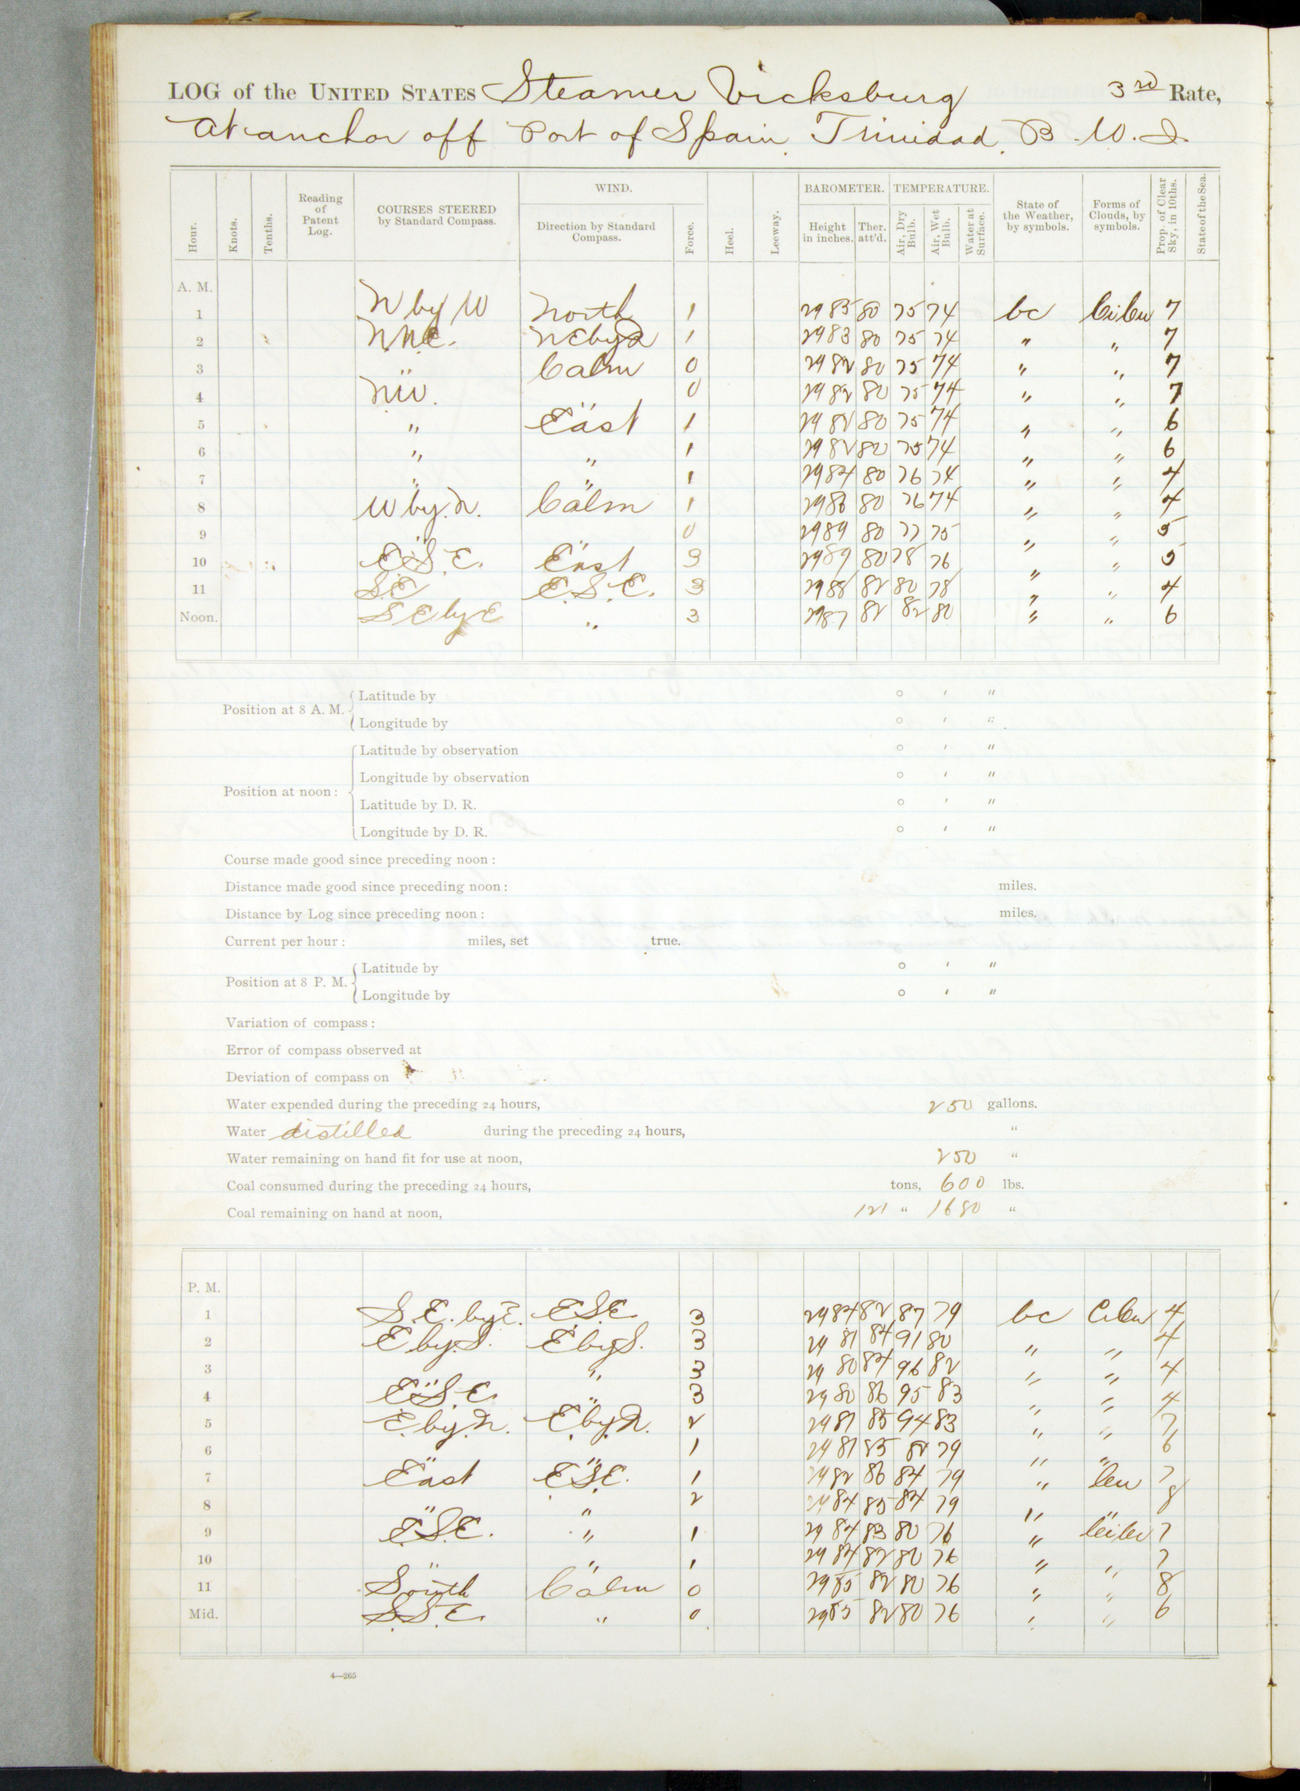 LOG of the UNITED STATES Steamer Vicksburg 3rd Rate,
At anchor off Port of Spain, Trinidad, B. W. I.
Hour. Knots. Tenths. Reading of Patent Log. COURSES STEERED by Standard Compass. WIND. Direction by Standard Compass. Force. Heel. Leeway. BAROMETER. Height in inches. Ther. att'd. TEMPERATURE. Air, Dry Bulb. Air, Wet Bulb. Water at Surface. State of the Weather, by symbols. Forms of Clouds, by symbols. Prop. of Clear Sky, in 10ths. State of the Sea.
A. M.
1 N by W North 1 29 83 80 75 74 bc Cicu 7
2 NNE. NE by N 1 29 83 80 75 74 " " 7
3 " Calm 0 29 82 80 75 74 " " 7
4 NW. 0 29 82 80 75 74 " " 7
5 " East 1 29 82 80 75 74 " " 6
6 " " 1 29 82 80 75 74 " " 6
7 " " 1 29 84 80 76 74 " " 4
8 W by N. Calm 1 29 86 80 76 74 " " 4
9 " " 0 29 89 80 77 75 " " 5
10 E.S.E. East 3 29 89 80 78 76 " " 5
11 SE E.S.E. 3 29 88 82 80 78 " " 4
Noon. SE by E " 3 29 87 82 82 80 " " 6
Position at 8 A. M. Latitude by ° ' "
Longitude by ° ' "
Position at noon: Latitude by observation ° ' "
Longitude by observation ° ' "
Latitude by D. R. ° ' "
Longitude by D. R. ° ' "
Course made good since preceding noon:
Distance made good since preceding noon: miles.
Distance by Log since preceding noon: miles.
Current per hour: miles, set true.
Position at 8 P. M. Latitude by ° ' "
Longitude by ° ' "
Variation of compass:
Error of compass observed at
Deviation of compass on
Water expended during the preceding 24 hours, 250 gallons.
Water distilled during the preceding 24 hours, "
Water remaining on hand fit for use at noon, 250 "
Coal consumed during the preceding 24 hours, tons, 600 lbs.
Coal remaining on hand at noon, 121 " 1680 "
P. M.
1 S.E. by E. ESE. 3 29 84 82 87 79 bc Cicu 4
2 E by S. E by S. 3 29 81 84 91 80 " " 4
3 " " 3 29 80 84 96 82 " " 4
4 E.S.E. " 3 29 80 86 95 83 " " 4
5 E. by N. E by N. 2 29 81 85 94 83 " " 7
6 " " 1 29 81 85 82 79 " " 6
7 East ESE. 1 29 82 86 84 79 " Cu 7
8 " " 2 29 84 85 84 79 " " 8
9 E.S.E. " 1 29 84 83 80 76 " Cicu 7
10 " " 1 29 84 82 80 76 " " 7
11 South Calm 0 29 85 82 80 76 " " 8
Mid. S.S.E. " 0 29 85 82 80 76 " " 6
4—265